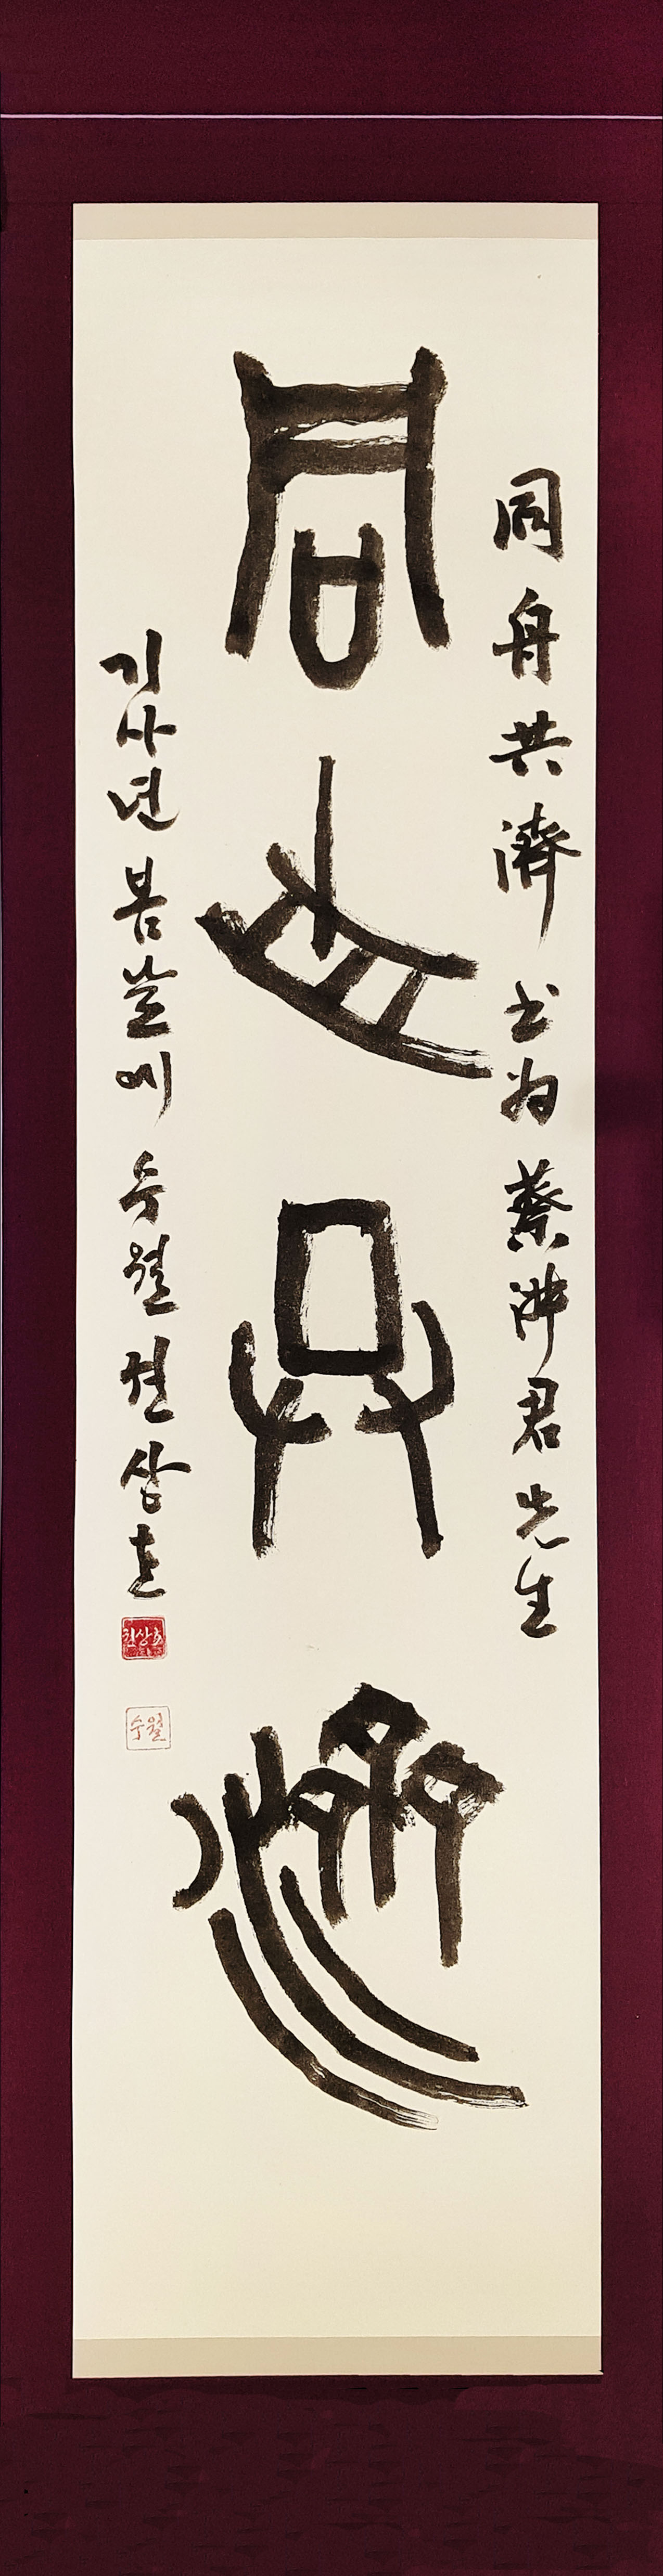 同舟共濟 书为 蔡冲君先生
同舟共濟
기사년 봄날에 수월 천상호
천상호
수월